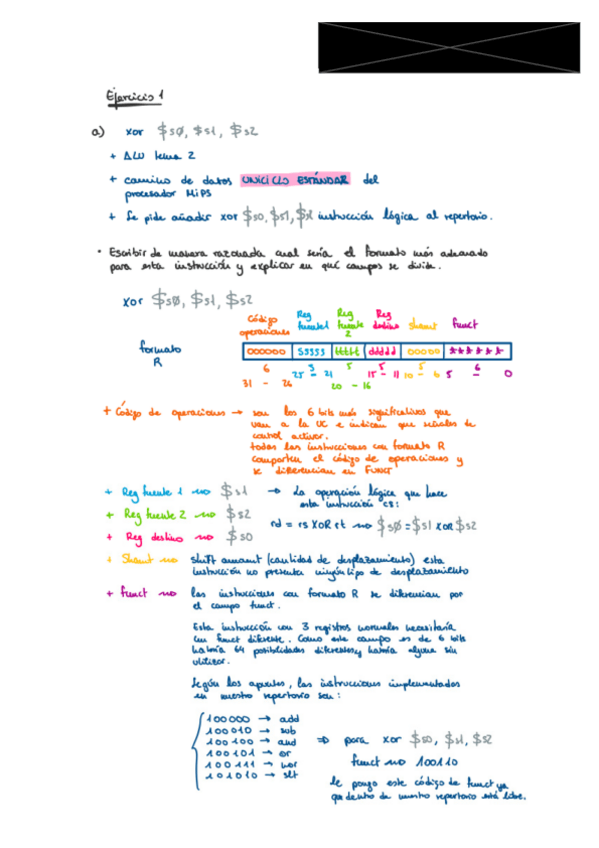 Ejercicio 1
a) xor $s0, $s1, $s2
+ ALU tema 2
+ camino de datos UNICICLO ESTÁNDAR del
procesador MIPS
+ Se pide añadir xor $s0, $s1, $s2 instrucción lógica al repertorio.
• Escribir de manera razonada cual sería el formato más adecuado
para esta instrucción y explicar en qué campos se divide.
xor $s0, $s1, $s2
Código operaciones Reg fuente 1 Reg fuente 2 Reg destino shamt funct
formato R
000000 sssss ttttt ddddd 00000 ******
6 5 5 5 5 6
31 - 26 25 - 21 20 - 16 15 - 11 10 - 6 5 0
+ Código de operaciones → son los 6 bits más significativos que
van a la UC e indican que señales de
control activar.
todas las instrucciones con formato R
comparten el código de operaciones y
se diferencian en FUNCT
+ Reg fuente 1 → $s1 → La operación lógica que hace
esta instrucción es:
+ Reg fuente 2 → $s2
rd = rs XOR rt → $s0 = $s1 XOR $s2
+ Reg destino → $s0
+ Shamt → shift amount (cantidad de desplazamiento) esta
instrucción no presenta ningún tipo de desplazamiento
+ funct → las instrucciones con formato R se diferencian por
el campo funct.
Esta instrucción con 3 registros normales necesitaría
un funct diferente. Como este campo es de 6 bits
habría 64 posibilidades diferentes y habría alguna sin
utilizar.
Según los apuntes, las instrucciones implementadas
en nuestro repertorio son:
100000 → add
100010 → sub
100100 → and
100101 → or
100111 → nor
101010 → slt
⇒ para xor $s0, $s1, $s2
funct → 100110
le pongo este código de funct ya
que dentro de nuestro repertorio está libre.